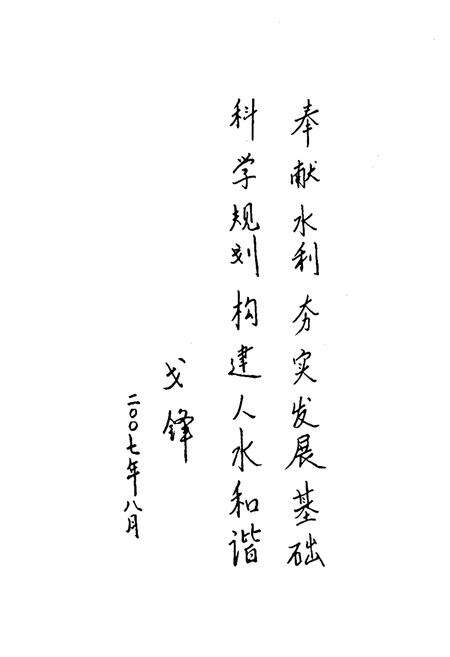 奉献水利夯实发展基础
科学规划构建人水和谐
戈锋
二〇〇七年八月